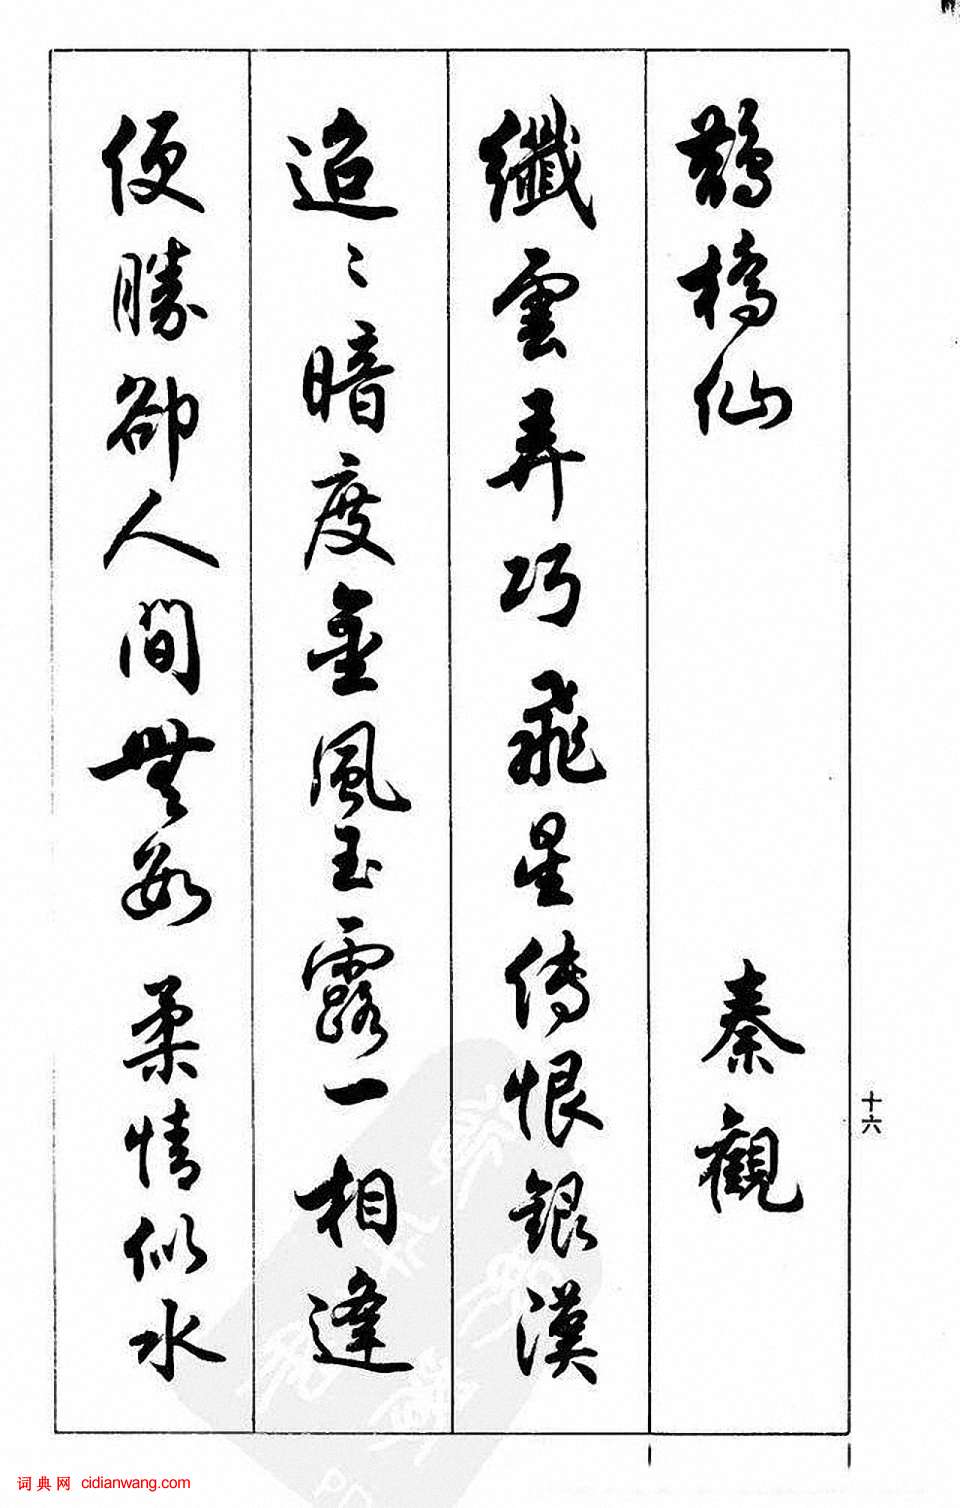 鵲橋仙 秦觀
纖雲弄巧飛星傳恨銀漢
迢〻暗度金風玉露一相逢
便勝卻人間無數柔情似水
十六
词典网 cidianwang.com